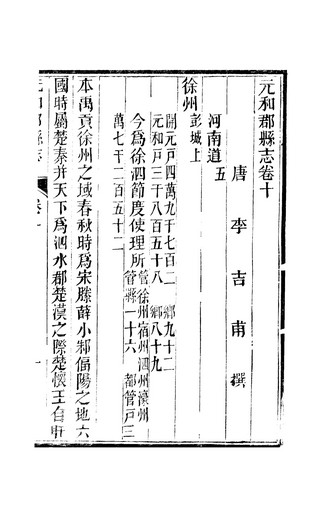 元和郡縣志卷十
唐 李吉甫 撰
河南道五
徐州 彭城 上
開元戶四萬九千七百二 鄉九十二
元和戶三千八百五十八 鄉八十九
今為徐泗節度使理所 管徐州宿州泗州濠州
管縣一十六 都管戶三
萬七千二百五十二
本禹貢徐州之域春秋時為宋滕薛小邾偪陽之地六
國時屬楚秦并天下為泗水郡楚漢之際楚懷王自盱
元和郡縣志 卷十 一